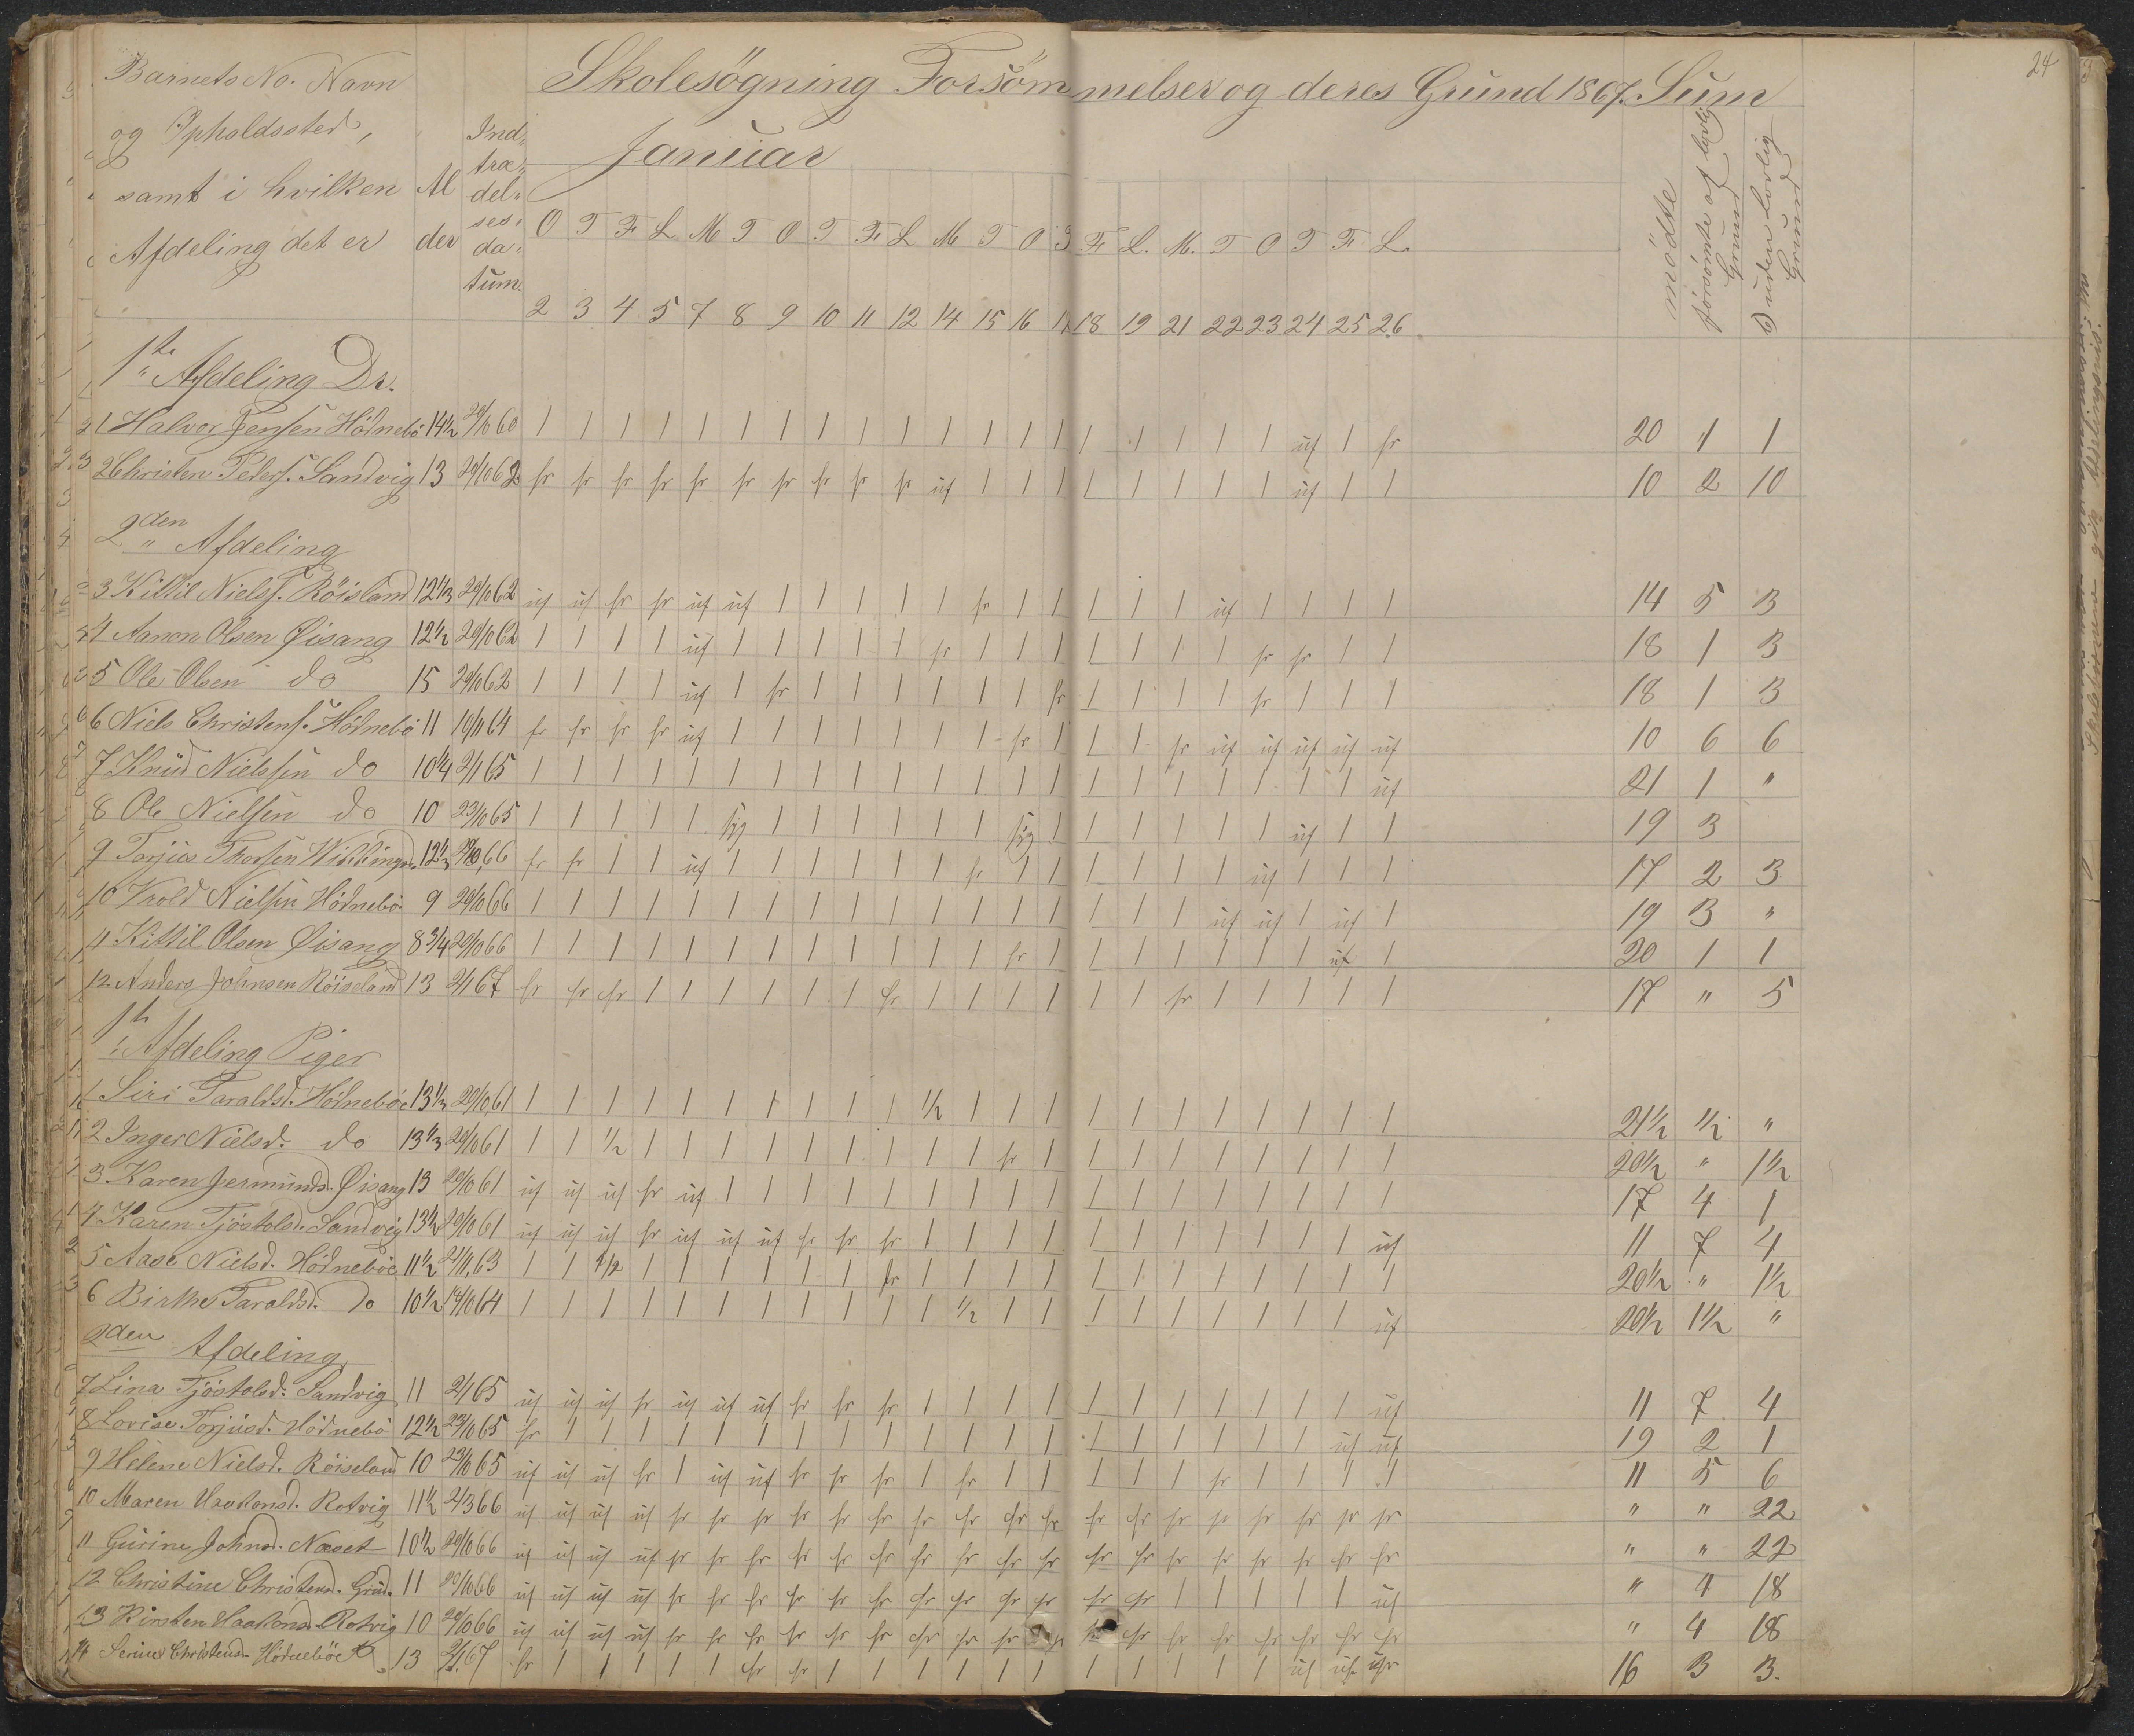 24
Skolesögning Forsömmelser og deres Grund 1867. Sum
Barnets No. Navn
og Opholdssted,
samt i hvilken
Afdeling det er
Al
der
Ind„
træ„
del„
ses„
da„
tum.
Januar
mödte
forsömte af lovlig Grund
D uden Lovlig Grund
O T F L M T O T F L M T O T F L. M. T O T F L.
2 3 4 5 7 8 9 10 11 12 14 15 16 17 18 19 21 22 23 24 25 26.
1te Afdeling Dr.
1 Halvor Jensen Hödnebö 14½ 29/10 60 1 1 1 1 1 1 1 1 1 1 1 1 1 1 1 1 1 1 1 uf 1 fr 20 1 1
2 Christen Peders. Sandvig 13 29/10 62 fr fr fr fr fr fr fr fr fr fr uf 1 1 1 1 1 1 1 1 uf 1 1 10 2 10
2den Afdeling
3 Kittil Niels. Röisland 12⅓ 29/10 62 uf uf fr fr uf uf 1 1 1 1 1 fr 1 1 1 1 1 uf 1 1 1 1 14 5 3
4 Aanon Olsen Øisang 12½ 29/10 62 1 1 1 1 uf 1 1 1 1 1 fr 1 1 1 1 1 1 1 fr fr 1 1 18 1 3
5 Ole Olsen do 15 29/10 62 1 1 1 1 uf 1 fr 1 1 1 1 1 1 fr 1 1 1 1 fr 1 1 1 18 1 3
6 Niels Christens. Hödnebö 11 10/11 64 fr fr fr fr uf 1 1 1 1 1 1 1 fr 1 1 1 fr uf uf uf uf uf 10 6 6
7 Knud Nielsen do 10¼ 2/1 65 1 1 1 1 1 1 1 1 1 1 1 1 1 1 1 1 1 1 1 1 1 uf 21 1 "
8 Ole Nielsen do 10 23/10 65 1 1 1 1 1 syg 1 1 1 1 1 1 syg 1 1 1 1 1 1 uf 1 1 19 3
9 Torjus Thorsen 12⅓ 66 fr fr 1 1 uf 1 1 1 1 1 1 fr 1 1 1 1 1 1 uf 1 1 1 17 2 3
10 Vrold Nielsen Hödnebö 9 29/10 66 1 1 1 1 1 1 1 1 1 1 1 1 1 1 1 1 1 uf uf 1 uf 1 19 3 "
11 Kittil Olsen Øisang 8¾ 29/10 66 1 1 1 1 1 1 1 1 1 1 1 1 fr 1 1 1 1 1 1 1 uf 1 20 1 1
12 Anders Johnsen Röiseland 13 2/1 67 fr fr fr 1 1 1 1 1 1 fr 1 1 1 1 1 1 fr 1 1 1 1 1 17 " 5
1te Afdeling Piger
1 Siri Taraldsd. Hödneböe 13⅓ 29/10 61 1 1 1 1 1 1 1 1 1 1 ½ 1 1 1 1 1 1 1 1 1 1 1 21½ ½ "
2 Inger Nielsd. do 13⅓ 29/10 61 1 1 ½ 1 1 1 1 1 1 1 1 1 fr 1 1 1 1 1 1 1 1 1 20½ " 1½
3 Karen Jermunds. Øisang 13 29/10 61 uf uf uf fr uf 1 1 1 1 1 1 1 1 1 1 1 1 1 1 1 1 1 17 4 1
4 Karen Tjöstolsd. Sandvig 13½ 29/10 61 uf uf uf fr uf uf uf fr fr fr 1 1 1 1 1 1 1 1 1 1 1 uf 11 7 4
5 Aase Nielsd. Hödneböe 11½ 21/11 63 1 1 ½ 1 1 1 1 1 1 fr 1 1 1 1 1 1 1 1 1 1 1 1 20½ " 1½
6 Birthe Taraldsd. do 10½ 14/10 64 1 1 1 1 1 1 1 1 1 1 1 ½ 1 1 1 1 1 1 1 1 1 uf 20½ 1½ "
2den Afdeling
7 Lina Tjöstolsd. Sandvig 11 2/1 65 uf uf uf fr uf uf uf fr fr fr 1 1 1 1 1 1 1 1 1 1 1 uf 11 7 4
8 Lovise Torjusd. Hödnebö 12½ 23/10 65 fr 1 1 1 1 1 1 1 1 1 1 1 1 1 1 1 1 1 1 1 uf uf 19 2 1
9 Helene Nielsd. Röiseland 10 23/10 65 uf uf uf fr 1 uf uf fr fr fr 1 fr 1 1 1 1 1 fr 1 1 1 1 11 5 6
10 Maren Haakonsd. Rotvig 11½ 2/3 66 uf uf uf uf fr fr fr fr fr fr fr fr fr fr fr fr fr fr fr fr fr fr " " 22
11 Gurine Johnsd. Næset 10½ 29/10 66 uf uf uf uf fr fr fr fr fr fr fr fr fr fr fr fr fr fr fr fr fr fr " " 22
12 Christine Christensd. Grud. 11 29/10 66 uf uf uf uf fr fr fr fr fr fr fr fr fr fr fr fr 1 1 1 1 1 uf " 4 18
13 Kirsten Haakonsd. Rotvig 10 29/10 66 uf uf uf uf fr fr fr fr fr fr fr fr fr fr fr fr fr fr fr fr fr " 4 18
14 Serine Christensd. Hödneböe 13 2/1 67 fr 1 1 1 1 1 fr fr 1 1 1 1 1 1 1 1 1 1 1 uf uf 16 3 3.